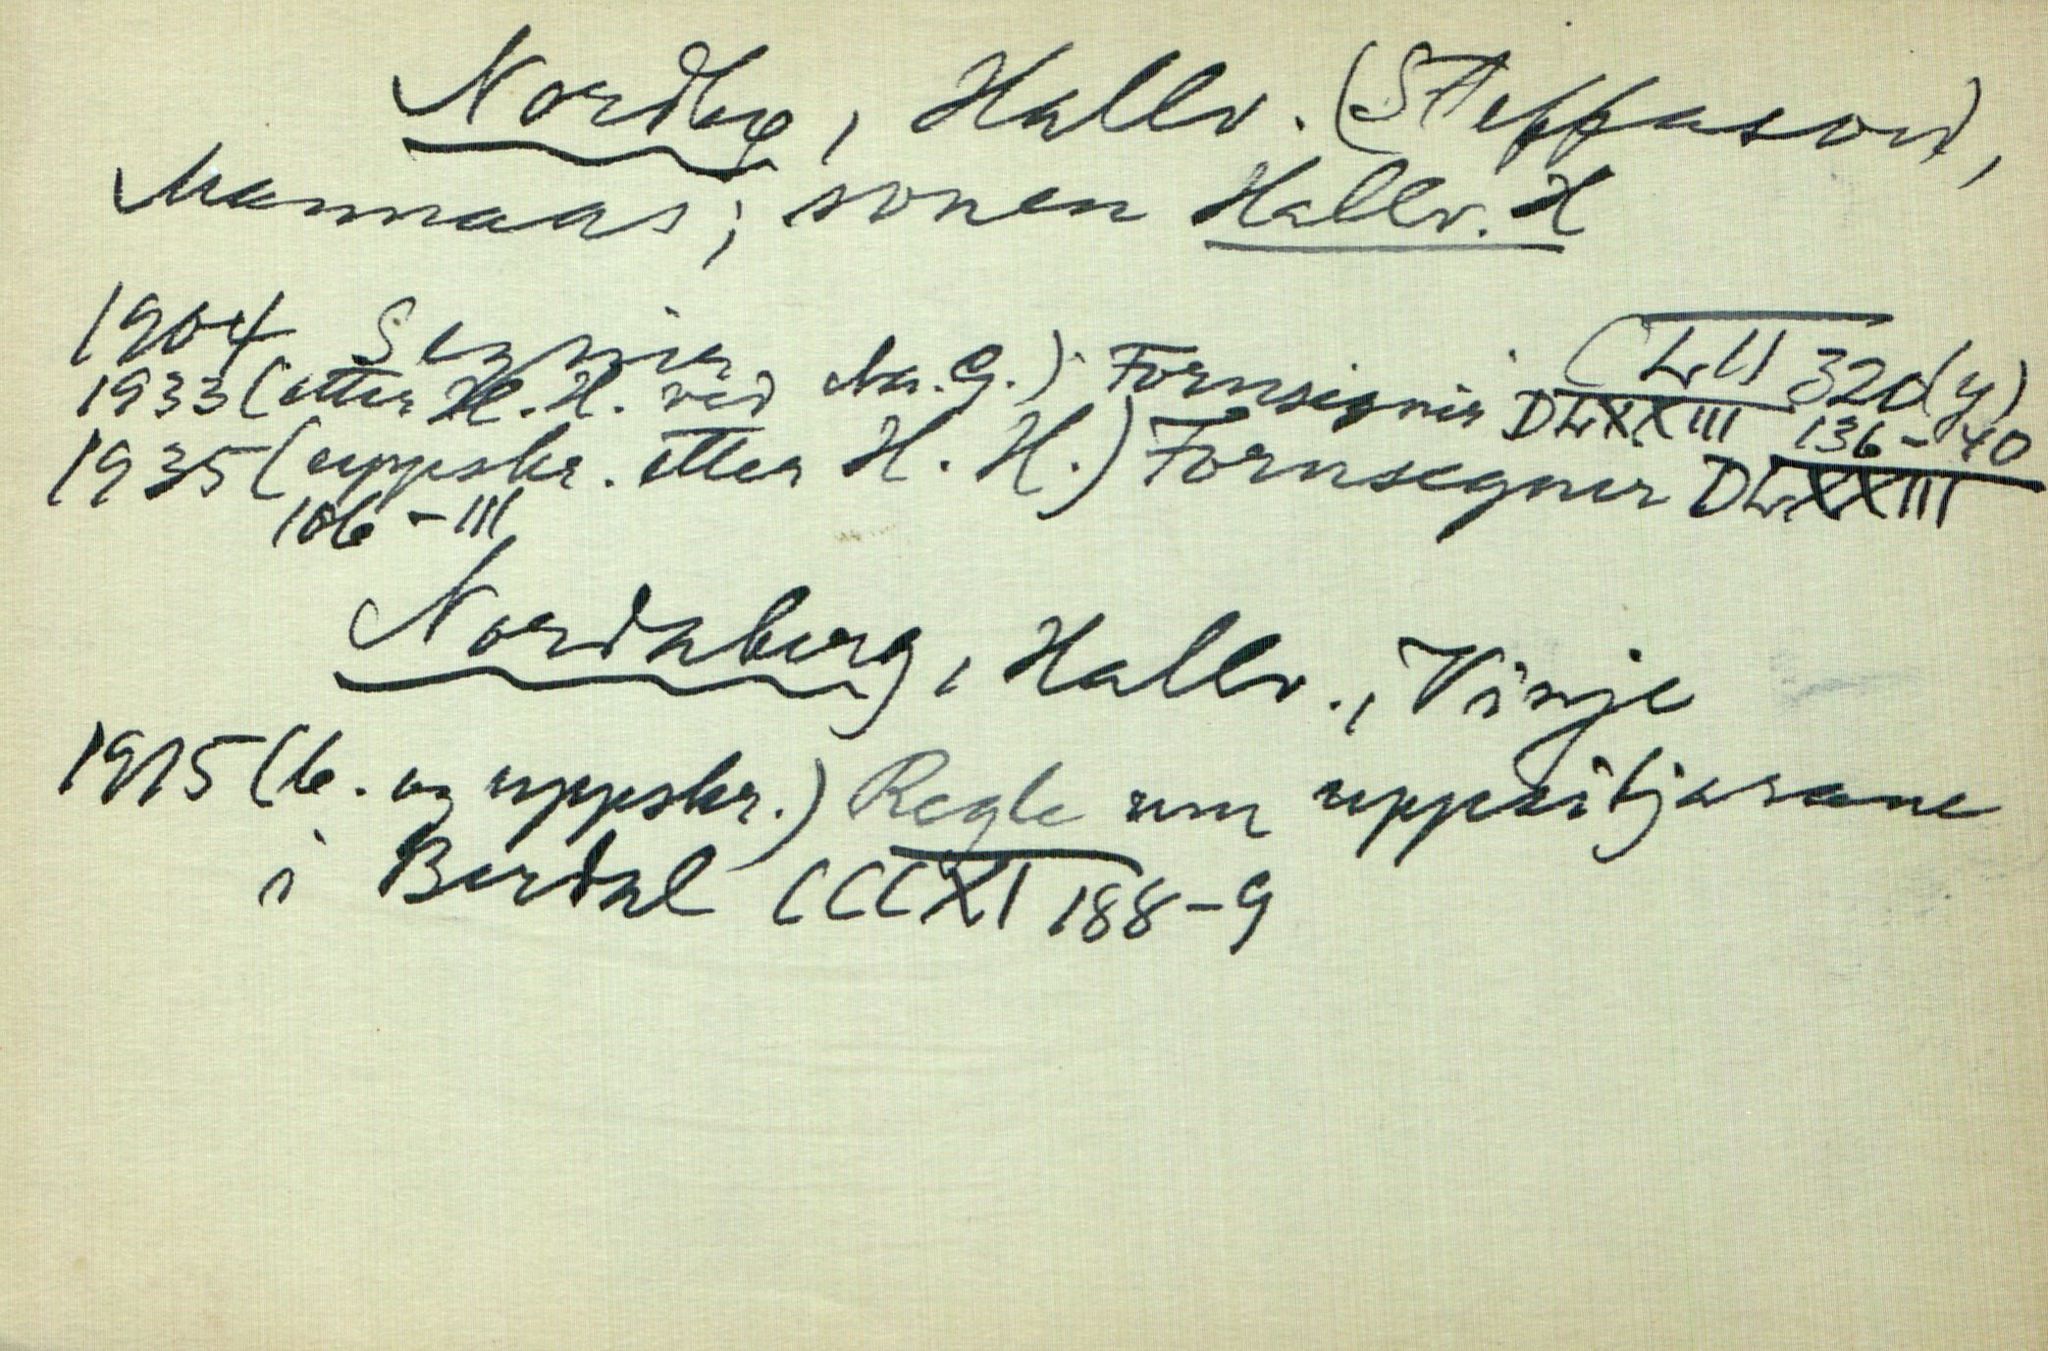 Nordbø, Hallv. (Steffason),
Mannaas; sonen Hallv. H
1904 Segnir CLII 32d(y)
1933 (etter H. H. ved No. G.) Fornsegnir DLXXIII 136-40
1935 (uppskr. etter H. H.) Fornsegner DLXXIII
106-111
Nordaberg, Hallv., Vinje
1915 (b. og uppskr.) Regle um uppsitjarane
i Berdal CCCXI 188-9